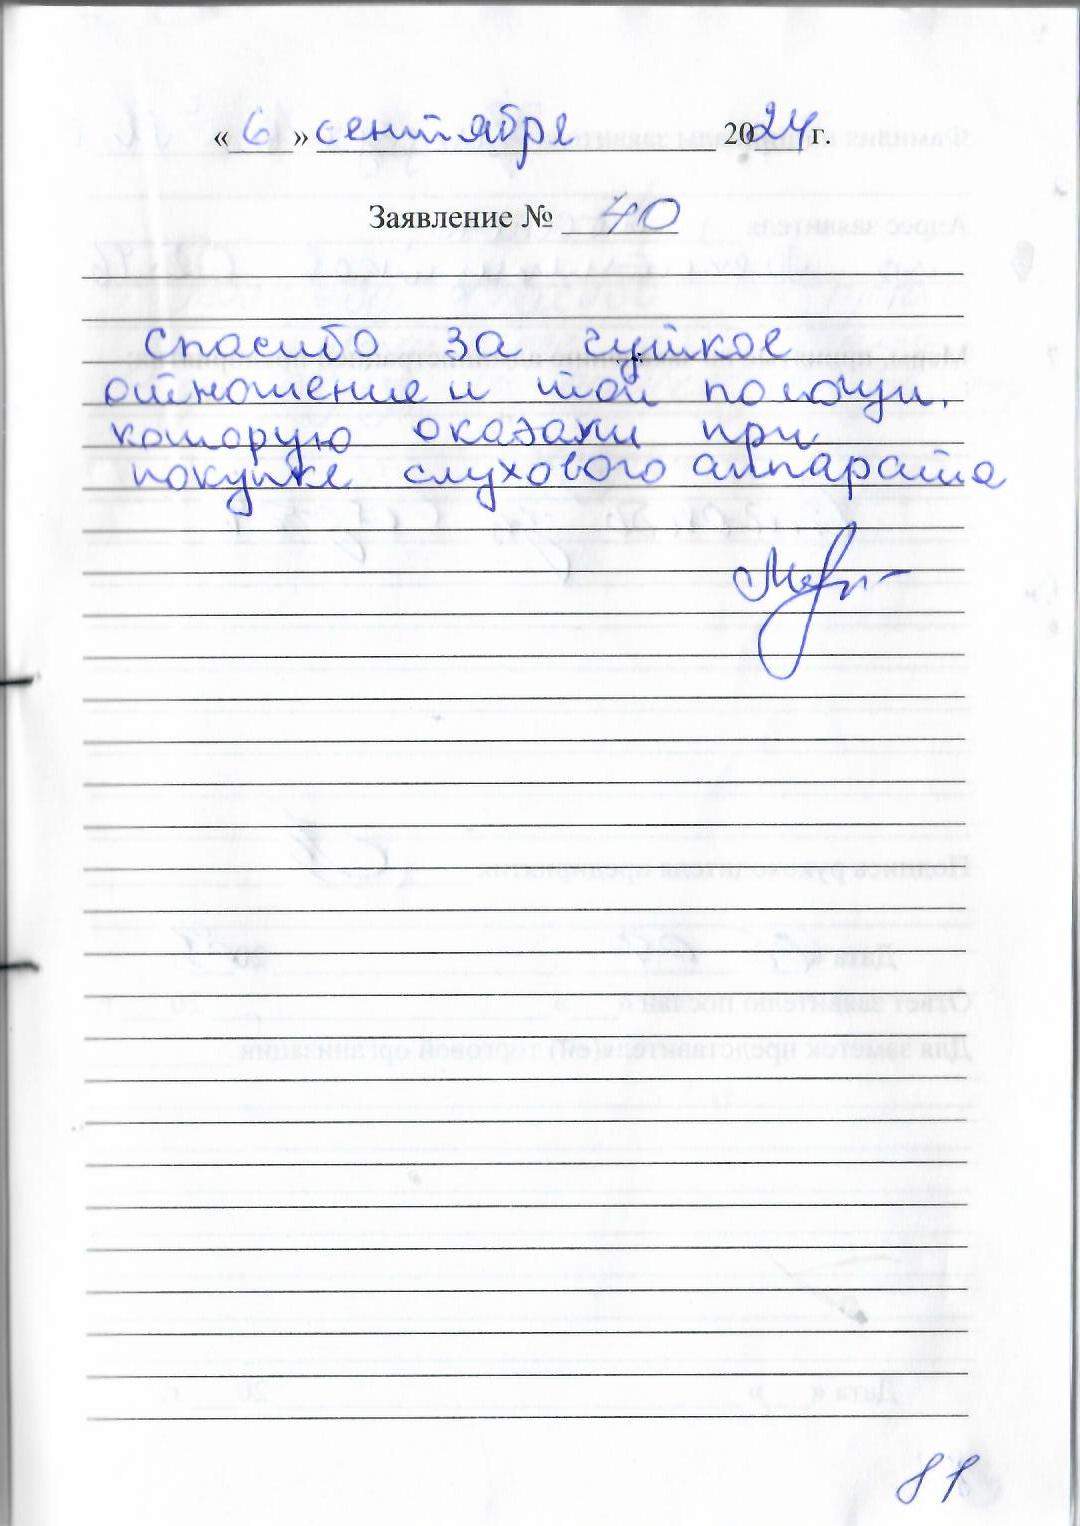 « 6 » сентября 2024 г.
Заявление № 40
Спасибо за чуткое
отношение и той помощи,
которую оказали при
покупке слухового аппарата
81